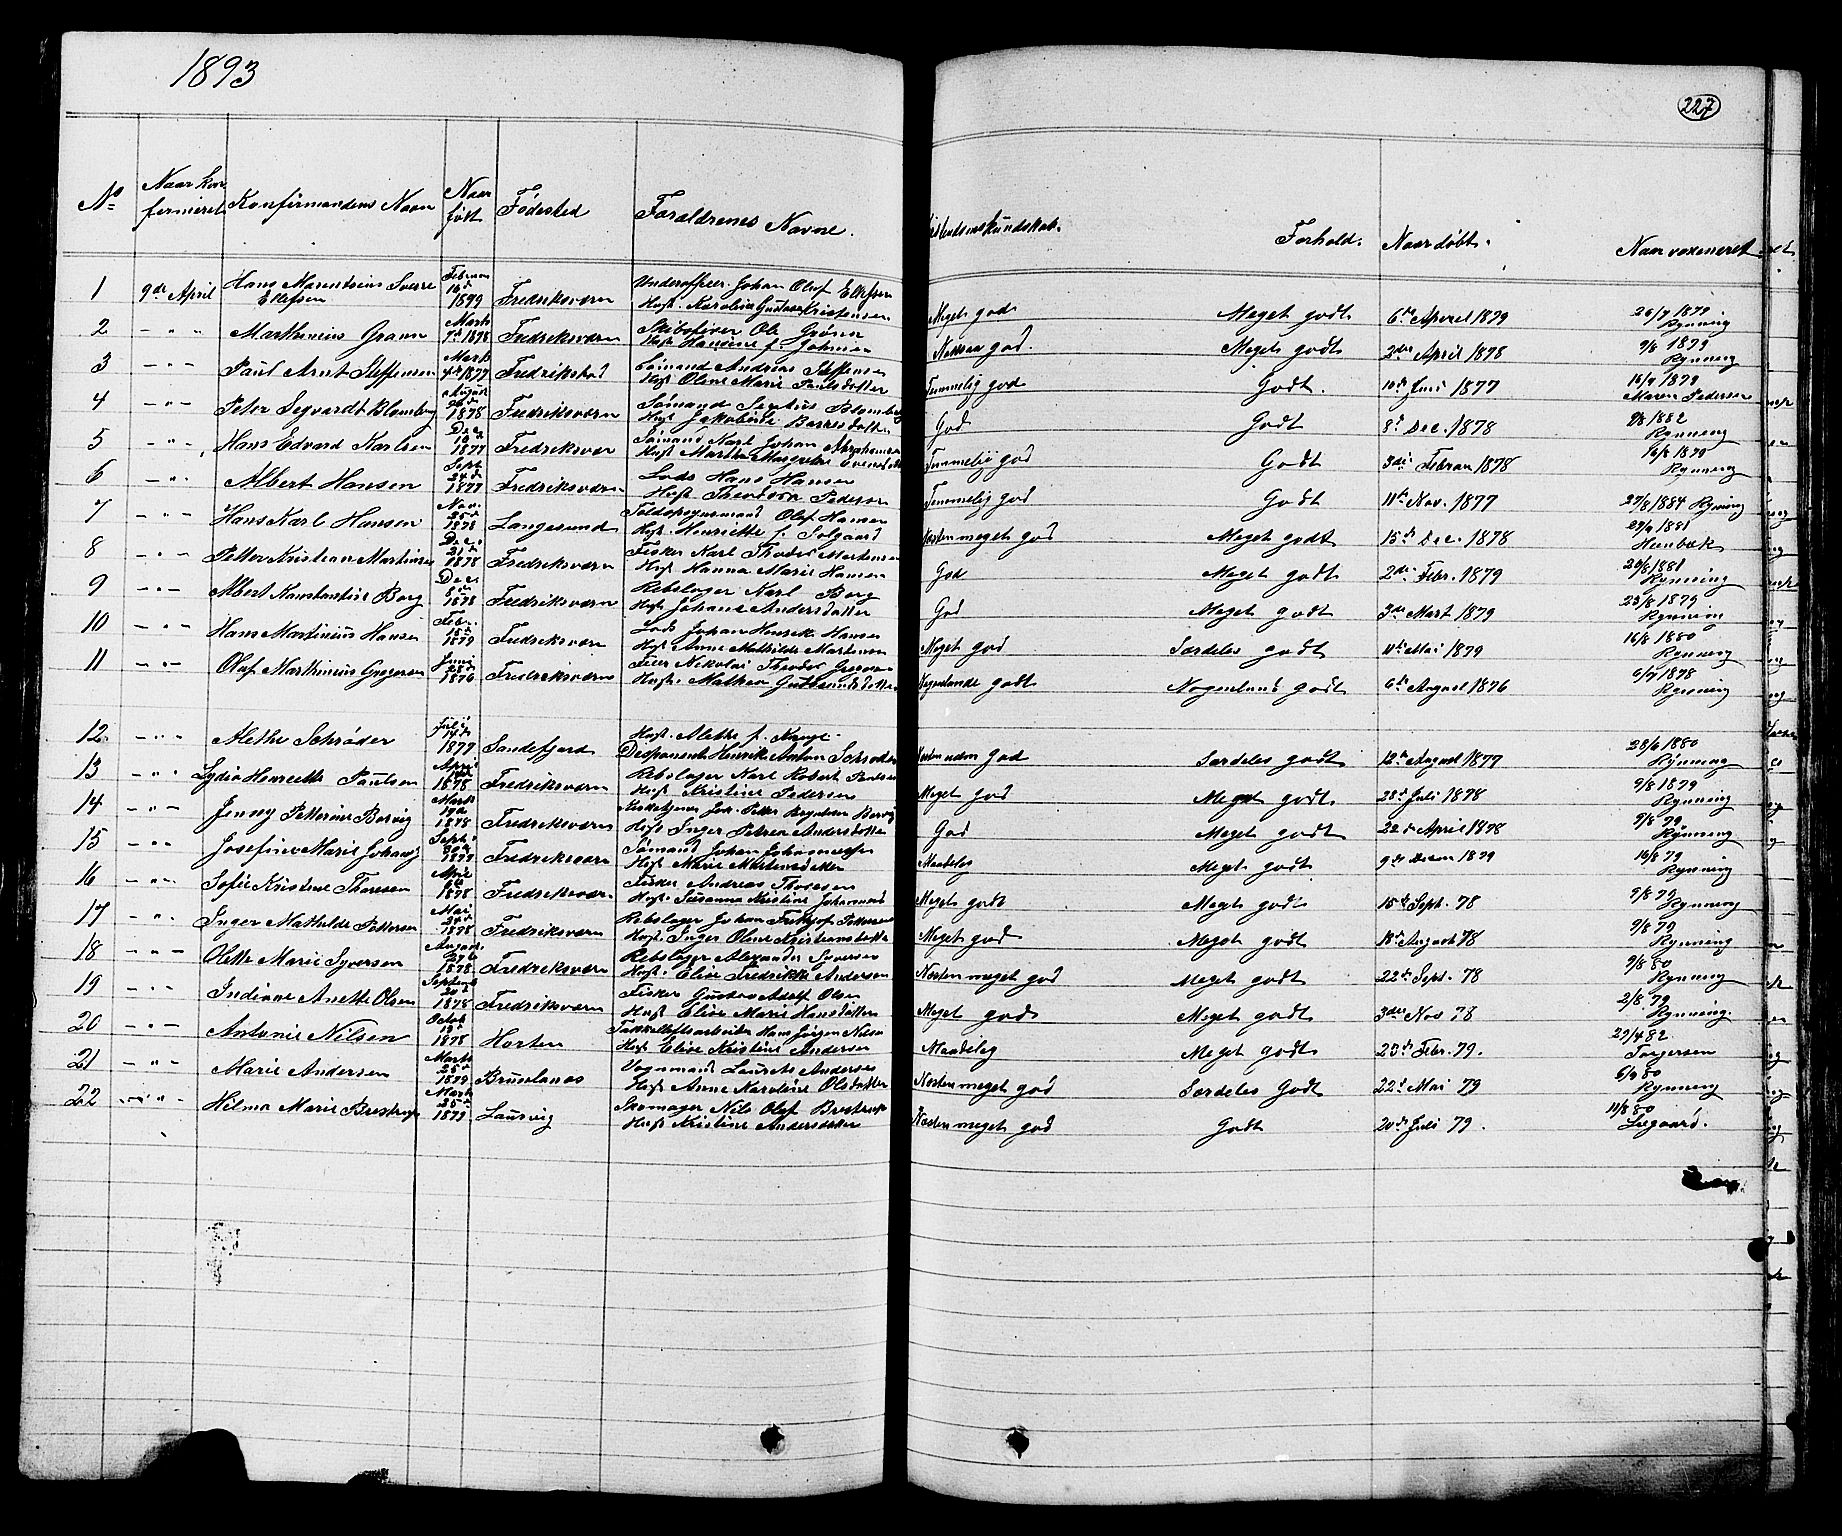 1893
227
No Naar konfirmeret Konfirmandens Navn Naar født Fødested Forældrenes Navne. Kundskab. Forhold. Naar døbt. Naar vaxineret
1 9de April Hans Ellefsen Februar 16de 1879 Fredriksværn Underofficer Johan Olaf Ellefsen
Hust. Karoline Gustava Kristensen Meget god Meget godt 6te April 1879 26/7 1879 Rynning
2 - " - Marthinius Grann Marts 1878 Fredriksværn
Hust Hansine f. Næsten god. Meget godt 2den April 1878 9/8 1879 Rynning
3 - " - Paul Arnt Steffensen Marts 1877 Fredrikstad Sømand Andreas Steffensen
Hust Oline Marie Paulsdatter Temmelig god Godt. 10de Juni 1877 16/9 1879 Maren Pedersen
4 - " - Peter Segvardt Blomberg August 1878 Fredriksværn Sømand Blomberg
Hust God Godt 8de Dec. 1878 9/8 1882 Rynning
5 - " - Hans Edvard Karlsen Dec 16de 1877 Fredriksværn Sømand Karl Johan Abrahamsen
Hust Martha Margrethe Temmelig god Godt 3die Februar 1878 16/8 1870 Rynning
6 - " - Albert Hansen Sept 24de 1877 Fredriksværn Lods Hans Hansen
Hust Theodora Pedersen Temmelig god Godt 11te Nov. 1877 27/8 1884 Rynning
7 - " - Hans Karl Hansen Nov. 25de 1878 Langesund Toldopsynsmand Olaf Hansen
Hust. Henriette f. Solgaard Næsten meget god Meget godt 15de Dec. 1878 29/9 1881
8 - " - Petter Kristian Martinsen Dec. 21de 1878 Fredriksværn Fisker Karl Thodor Martensen
Hust. Hanna Marie Hansen God Meget godt 2den Febr. 1879 29/8 1881 Rynning
9 - " - Albert Konstantius Borg Dec 8de 1878 Fredriksværn Rebslager Karl Borg
Hust Johane Andersdatter God Meget godt 9de Mart 1879 23/8 1879
10 - " - Hans Martinius Hansen Febr. 15de 1879 Fredriksværn Lods Johan Henrik Hansen
Hust Anne Mathilde Martensen Meget god Særdeles godt 11te Mai 1879 16/8 1880 Rynning
11 - " - Olaf Marthinius Gregersen Juni 28de 1876 Fredriksværn Feier Nikolai Theodor
Hust. Mathea Nogenlunde godt Nogenlund godt 6te August 1876 6/9 1878 Rynning
12 - " - Alethe Schrøder Juli 14de 1877 Sandefjord Hust. Alethe f.
Disponent Henrik Anton Schrøder god Særdeles godt 12te August 1877 28/6 1880 Rynning
13 - " - Lydia Henriette Paulsen April 1878 Fredriksværn Rebslager Karl Robert Paulsen
Hust Kristine Pedersen Meget god Meget godt 28de Juli 1878 9/8 1879 Rynning
14 - " - Jenny Petterine Borvig Marts 17de 1878 Fredriksværn Joh. Petter
Hust Inger Petrea Andersdatter God Meget godt 22de April 1878 9/8 79 Rynning
15 - " - Josefine Marie Sept. 1877 Fredriksværn Sømand Johan Johannessen
Hust Marie Mortensdatter Maadelig Meget godt 9de 1877 16/8 79 Rynning
16 - " - Sofie Kristine Thoresen April 1878 Fredriksværn Fisker Andreas Thoresen
Hust. Susanna Kristine Meget godt Meget godt 15de Sept. 78 9/8 79 Rynning
17 - " - Inger Mathilde Pettersen Mai 24de 1878 Fredriksværn Rebslager Johan Pettersen
Hust. Inger Oline Kristiansdatter Meget god Meget godt 18de August 78 9/8 79 Rynning
18 - " - Hette Marie Syversen August 27de 1878 Fredriksværn Rebslager Alexander Syversen
Hust. Elise Fredrikke Andersen Næsten meget god Meget godt 22de Sept. 78 9/8 80 Rynning
19 - " - Indiane Anette Olsen Septemb 20de 1878 Fredriksværn Fisker Gustav Adolf Olsen
Hust Elise Marie Hansdatter Meget god Meget godt 3die Nov 78 2/8 79 Rynning.
20 - " - Antonie Nilsen Octob 19de 1878 Horten Hans Jørgen Nilsen
Hust Elise Kristine Andersen Maadelig Meget godt 23de Febr. 79. 27/4 82. Torgersen
21 - " - Marie Andersen Marts 25de 1879 Brunlanæs Vognmand Laurits Andersen
Hust Anne Karoline Olsdatter Næsten meget god Særdeles Godt 22de Mai 79 6/9 80 Rynning
22 - " - Hilma Marie Brestrup Marts 25de 1879. Laurvig Skomager Nils Olaf Brestrup
Hust Kristine Andersdatter Næsten meget god Godt 20de Juli 79. 11/8 80